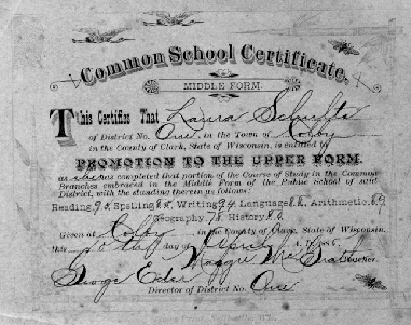 Common School Certificate.
MIDDLE FORM.
This Certifies That Laura Schultz
of District No. One, in the Town of Colby
in the County of Clark, State of Wisconsin, is entitled to
PROMOTION TO THE UPPER FORM,
as she has completed that portion of the Course of Study in the Common
Branches embraced in the Middle Form of the Public School of said
District, with the standing therein as follows:
Reading, Spelling 85, Writing 94 Language Arithmetic 69
Geography, 78 History 80
Given at Colby in the County of Clark, State of Wisconsin,
this day of April
Maggie Mc Grath Teacher.
George Eder
Director of District No. One